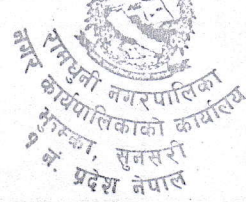 रामधुनी नगरपालिका
नगर कार्यपालिकाको कार्यालय
भुटाहा, सुनसरी
१ नं. प्रदेश नेपाल